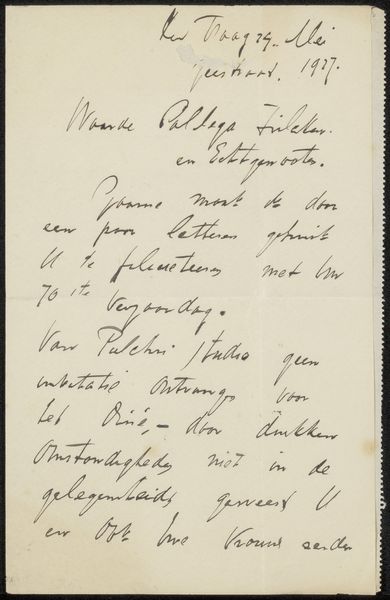 Den Haag 24. Mei
Geestraat. 1927.
Waarde Collega Zilcken.
en Echtgenoote.
Gaarne maak ik door
een paar letteren gebruik
U te feliciteeren met Uw
70ste Verjaardag.
Van Pulchri Studio geen
invitatie ontvangen voor
het Diné, – door drukken
Omstandigheden niet in de
gelegenheid geweest U
en Ook Uwe Vrouw eerder